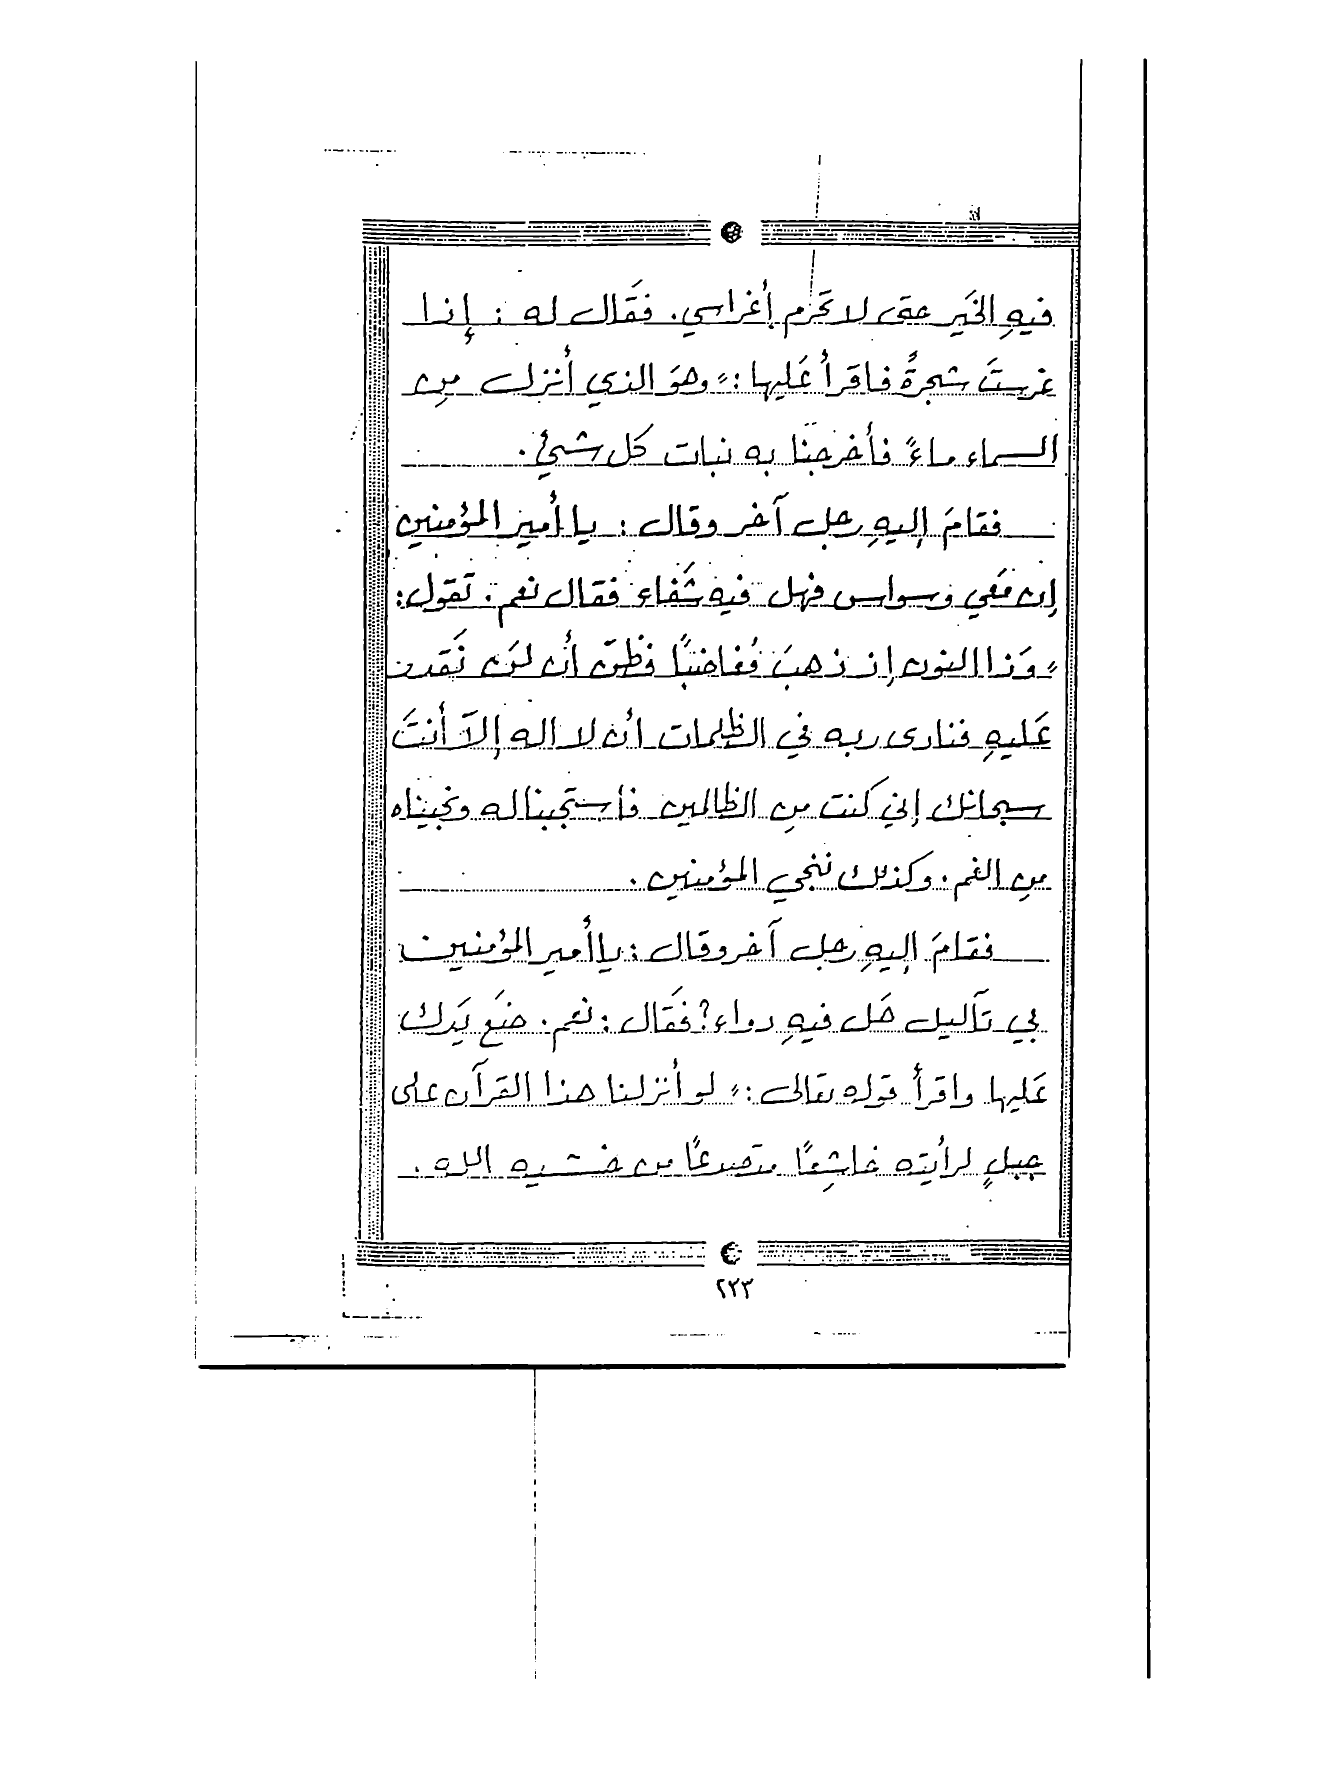 فيهِ الخَير حتى لا تَحرُم أغراسي. فقَال له : إذا
غرستَ شجرةً فاقرأ عَليها : " وهوَ الذي أُنزل من
السماء ماءً فأخرجنا به نبات كل شيئ .
فقامَ إليهِ رجل آخر وقال : يا أمير المؤمنين
إن مَعي وسواس فهل فيه شَفاء فقال نعم . تقول :
" وَذا النون إذ ذهبَ مُغاضبًا فظنّ أن لَن نَقدر
عَليهِ فنادى ربه في الظلمات أن لا اله إلآ أنتَ
سبحانك إني كنت من الظالمين فاستجبنا له ونجيناه
من الغم . وكذلك ننجي المؤمنين .
فقامَ إليهِ رجل آخر وقال : يا أمير المؤمنين
بي تآليل هَل فيهِ دواء ؟ فقَال : نعم . ضَع يَدك
عَليها واقرأ قوله تعالى : " لو أنزلنا هذا القرآن على
جبلٍ لرأيته خاشِعًا متصدعًا من خشيه الله .
٢٣٣